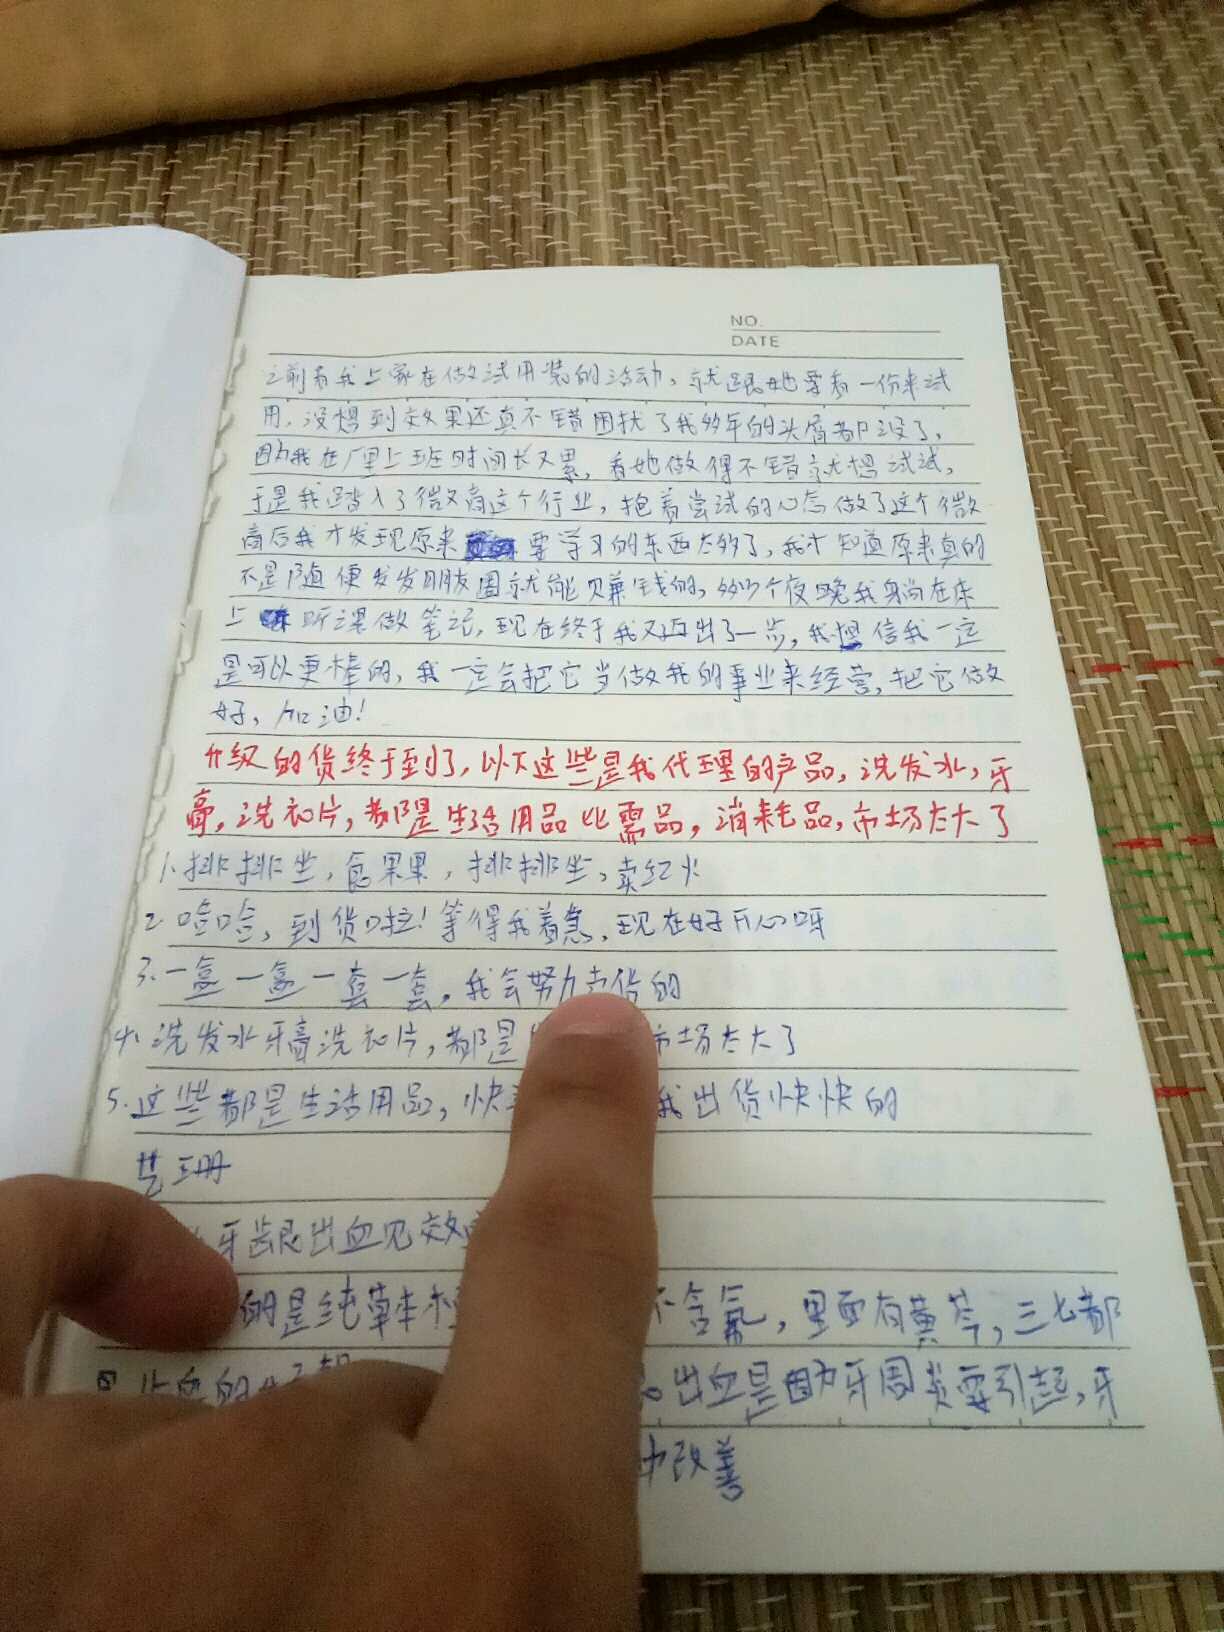 NO.
DATE
之前看我上家在做试用装的活动，就跟她要看一份来试
用，没想到效果还真不错困扰了我多年的头屑都没了，
因为我在厂里上班时间长又累，看她做得不错就想试试，
于是我踏入了微商这个行业，抱着尝试的心态做了这个微
商后我才发现原来要学习的东西太多了，我才知道原来真的
不是随便发发朋友圈就能赚钱的，多少个夜晚我躺在床
上听课做笔记，现在终于我又迈出了一步，我相信我一定
是可以更棒的，我一定会把它当做我的事业来经营，把它做
好，加油！
升级的货终于到了，以下这些是我代理的产品，洗发水，牙
膏，洗衣片，都是生活用品必需品，消耗品，市场太大了
1.排排坐，食果果，排排坐，卖红火
2.哈哈，到货啦！等得我着急，现在好开心呀
3.一盒一盒一套一套，我会努力卖货的
4.洗发水牙膏洗衣片，都是 市场太大了
5.这些都是生活用品，快 我出货快快的
牙龈出血见效
的是纯草本 不含氟，里面有黄芩，三七都
出血是因为牙周炎要引起，牙
改善